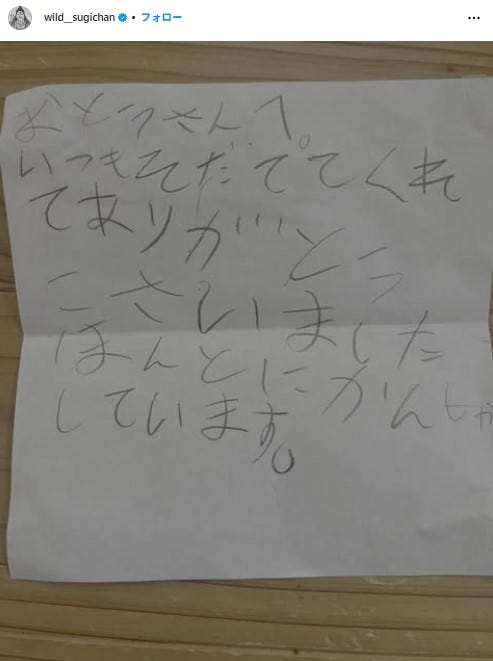 wild__sugichan • フォロー
おとうさんへ。
いつもそだててくれ
てありがとう
ございました
ほんとにかんしゃ
しています。